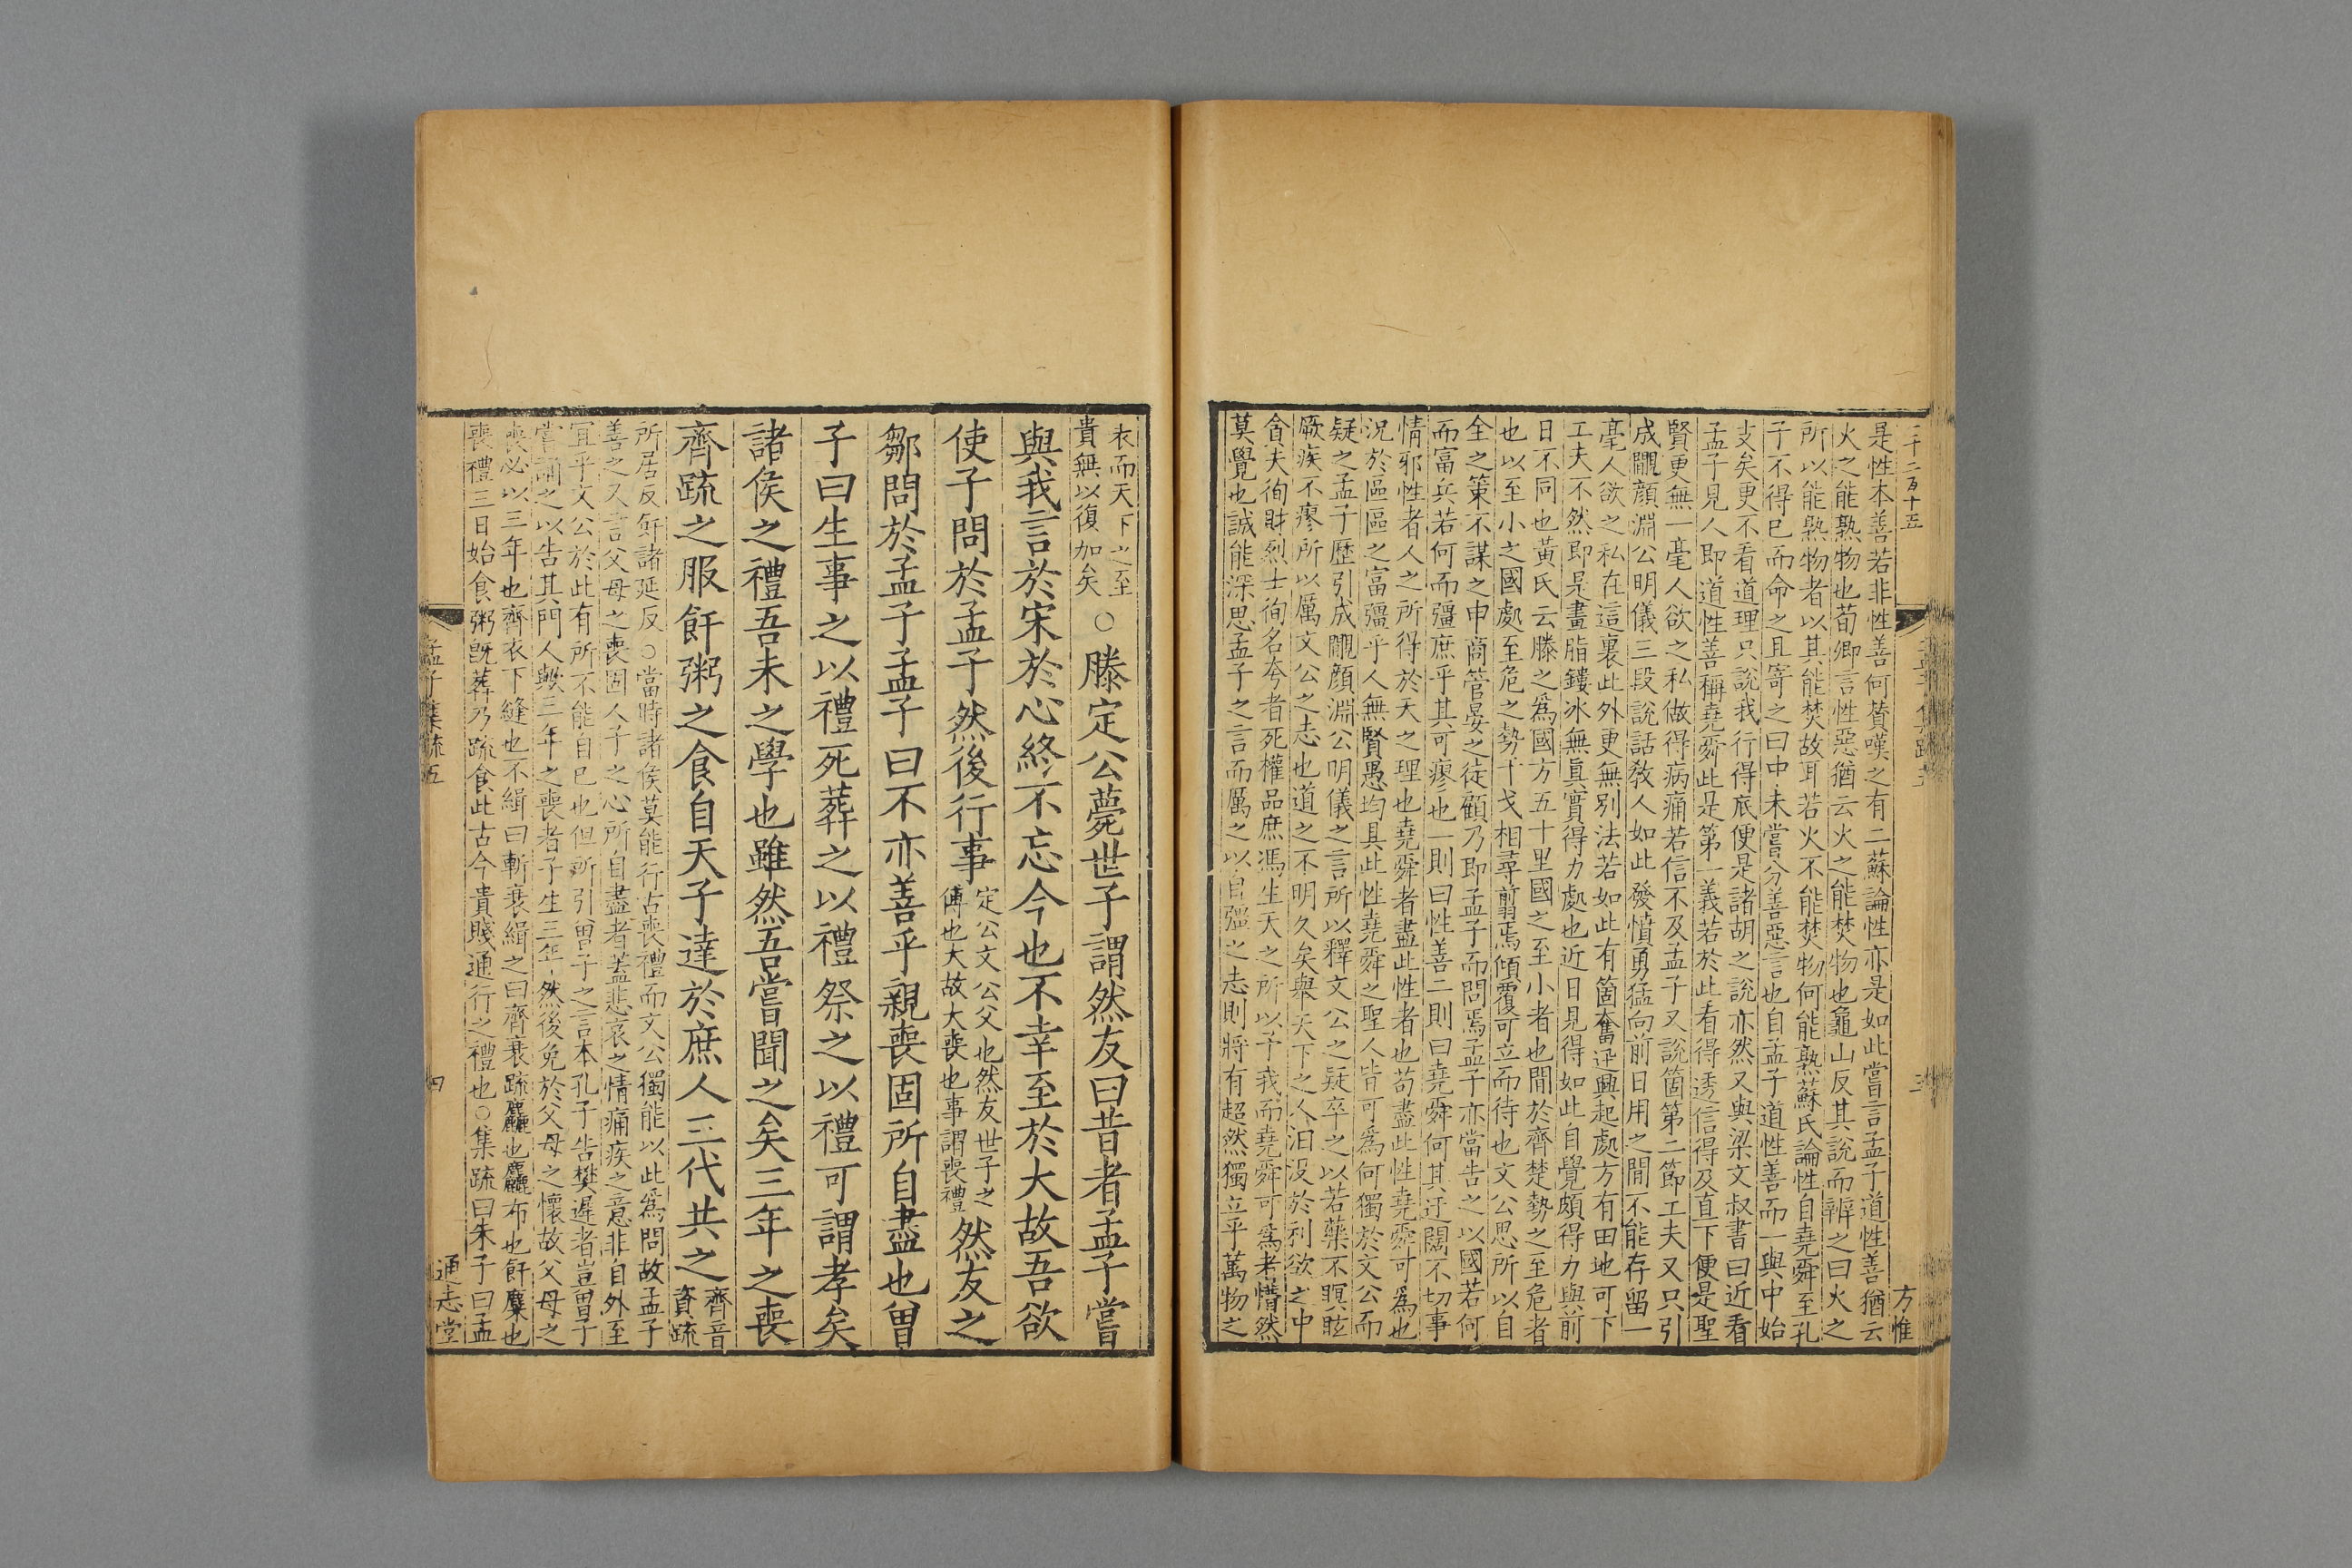 二千二百十五
方惟
是性本善若非性善何贊嘆之有二蘇論性亦是如此嘗言孟子道性善猶云
火之能熟物也荀卿言性惡猶云火之能焚物也龜山反其說而辨之曰火之
所以能熟物者以其能焚故耳若火不能焚物何能熟蘇氏論性自堯舜至孔
子不得已而命之且寄之曰中未嘗分善惡言也自孟子道性善而一與中始
支矣更不看道理只說我行得底便是諸胡之說亦然又與梁文叔書曰近看
孟子見人即道性善稱堯舜此是第一義若於此看得透信得及直下便是聖
賢更無一毫人欲之私做得病痛若信不及孟子又說箇第二節工夫又只引
成覵顏淵公明儀三段說話敎人如此發憤勇猛向前日用之間不能存留一
毫人欲之私在這裏此外更無別法若如此有箇奮迅興起處方有田地可下
工夫不然即是畫脂鏤冰無眞實得力處也近日見得如此自覺頗得力與前
日不同也黃氏云滕之爲國方五十里國之至小者也間於齊楚勢之至危者
也以至小之國處至危之勢干戈相尋翦焉傾覆可立而待也文公思所以自
全之策不謀之申商管晏之徒顧乃即孟子而問焉孟子亦當告之以國若何
而富兵若何而彊庶乎其可瘳也一則曰性善二則曰堯舜何其迂闊不切事
情邪性者人之所得於天之理也堯舜者盡此性者也苟盡此性堯舜可爲也
況於區區之富彊乎人無賢愚均具此性堯舜之聖人皆可爲何獨於文公而
疑之孟子歷引成覵顏淵公明儀之言所以釋文公之疑卒之以若藥不瞑眩
厥疾不瘳所以厲文公之志也道之不明久矣與天下之人汨沒於利欲之中
貪夫徇財烈士徇名夸者死權品庶馮生天之所以予我而堯舜可爲者懵然
莫覺也誠能深思孟子之言而厲之以自彊之志則將有超然獨立乎萬物之
表而天下之至
貴無以復加矣
○滕定公薨世子謂然友曰昔者孟子嘗
與我言於宋於心終不忘今也不幸至於大故吾欲
使子問於孟子然後行事
定公文公父也然友世子之
傅也大故大喪也事謂喪禮
然友之
鄒問於孟子孟子曰不亦善乎親喪固所自盡也曾
子曰生事之以禮死葬之以禮祭之以禮可謂孝矣
諸侯之禮吾未之學也雖然吾嘗聞之矣三年之喪
齊疏之服飦粥之食自天子達於庶人三代共之
齊音
資疏
所居反飦諸延反○當時諸侯莫能行古喪禮而文公獨能以此爲問故孟子
善之又言父母之喪固人子之心所自盡者蓋悲哀之情痛疾之意非自外至
宜乎文公於此有所不能自已也但所引曾子之言本孔子告樊遲者豈曾子
嘗誦之以告其門人歟三年之喪者子生三年然後免於父母之懷故父母之
喪必以三年也齊衣下縫也不緝曰斬衰緝之曰齊衰疏麤也麤布也飦糜也
喪禮三日始食粥旣葬乃疏食此古今貴賤通行之禮也○集疏曰朱子曰孟
孟子集疏五
四
通志堂